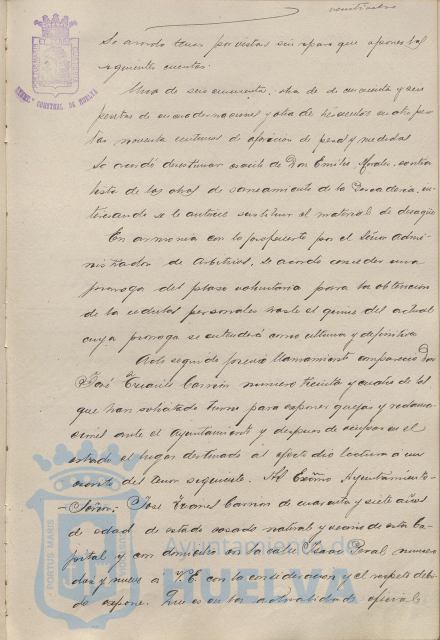 veintiocho
AYUNT. CONSTNAL DE HUELVA
Se acordó tener por vistas sin reparo que oponer las
siguientes cuentas:
Una de seis cincuenta, otra de cincuenta y seis
pesetas de encuadernaciones y otra de
noventa centimos de aforacion de pesas y medidas
Se acordó desestimar escrito de Don Emilio Morales, contra
tista de las obras de saneamiento de la Pescaderia,
se le autorice sustituir el material de desagüe
En armonia con lo propuesto por el Señor Admi-
nistrador de Arbitrios, se acordó conceder una
prorroga del plazo voluntario para la obtencion
de la cedulas personales hasta el quince del actual
cuya prorroga se entenderá como ultima y definitiva
Acto seguido previo llamamiento comparecio Don
José Carrión numero treinta y cuatro de los
que han solicitado turno para exponer quejas y reclama
ciones ante el Ayuntamiento y despues de ocupar en el
estrado el lugar destinado al efecto dió lectura a un
escrito del tenor siguiente. Al Excmo Ayuntamiento-
-Señor: José Carrion de cuarenta y siete años
de edad, de estado casado natural y vecino de esta Ca-
pital y con domicilio en la calle Isaac Peral, numero
diez y nueve á V.E. con la consideracion y el respeto debi-
do expone. Que en la actualidad
PORTUS MARIS
Ayuntamiento de
HUELVA